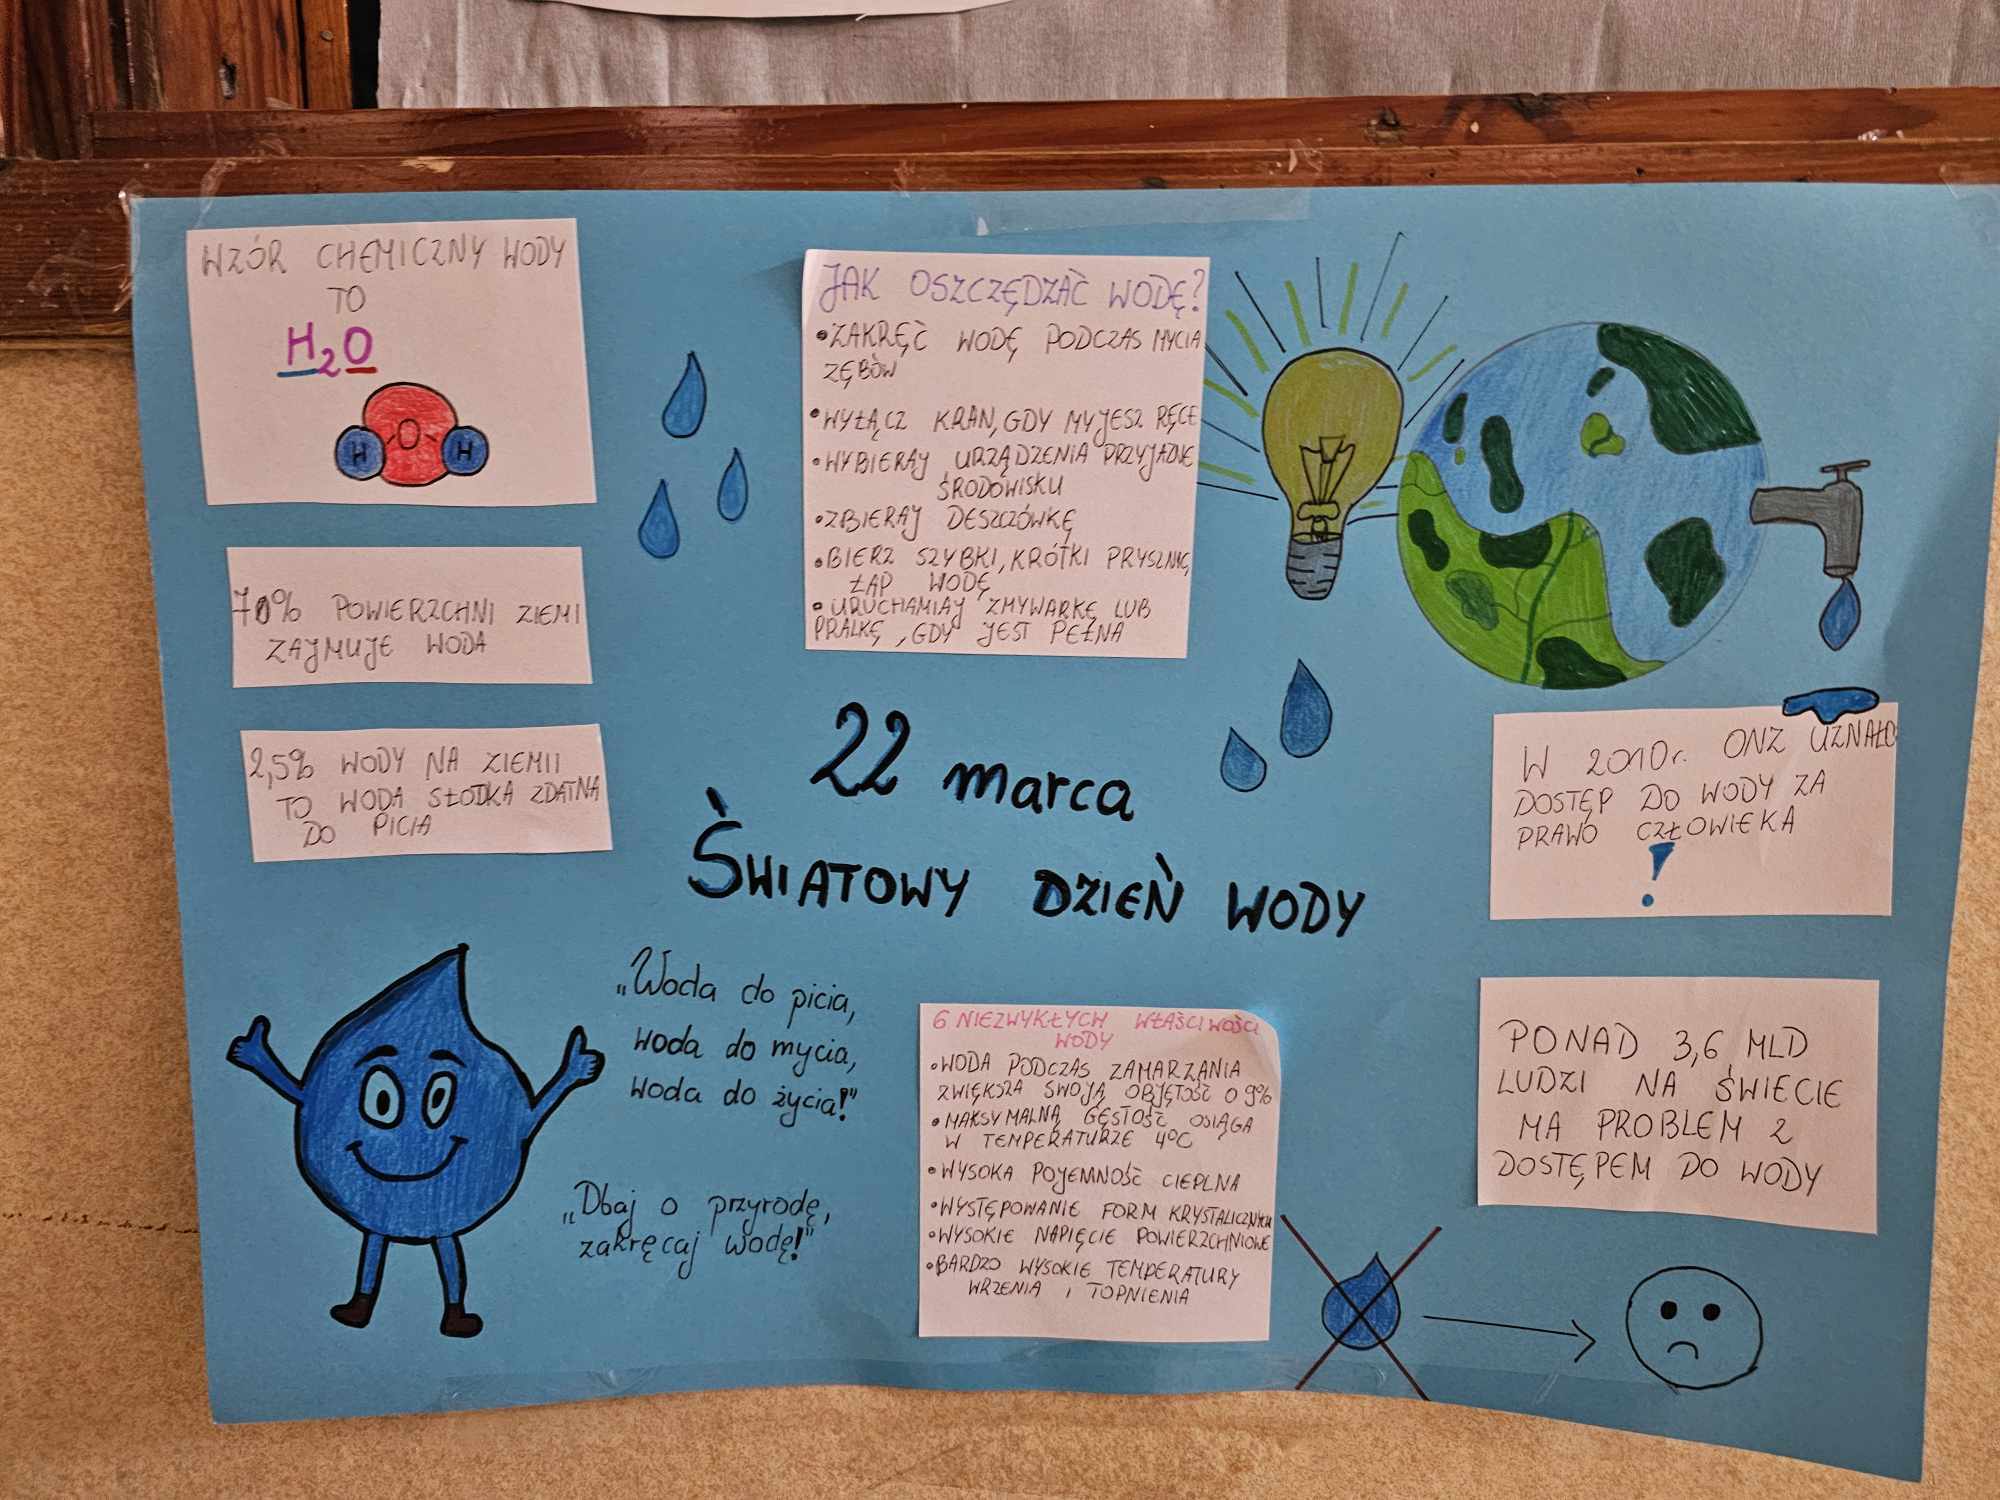 WZÓR CHEMICZNY WODY
TO
H₂O
H O H
70% POWIERZCHNI ZIEMI
ZAJMUJE WODA
2,5% WODY NA ZIEMII
TO WODA SŁODKA ZDATNA
DO PICIA
JAK OSZCZĘDZAĆ WODĘ?
•ZAKRĘĆ WODĘ PODCZAS MYCIA
ZĘBÓW
•WYŁĄCZ KRAN, GDY MYJESZ RĘCE
•WYBIERAJ URZĄDZENIA PRZYJAZNE
ŚRODOWISKU
•ZBIERAJ DESZCZÓWKĘ
•BIERZ SZYBKI, KRÓTKI PRYSZNIC,
ŁAP WODĘ
•URUCHAMIAJ ZMYWARKĘ LUB
PRALKĘ, GDY JEST PEŁNA
22 marca
ŚWIATOWY DZIEŃ WODY
W 2010r. ONZ UZNAŁO
DOSTĘP DO WODY ZA
PRAWO CZŁOWIEKA
!
„Woda do picia,
woda do mycia,
woda do życia!"
„Dbaj o przyrodę,
zakręcaj wodę!"
6 NIEZWYKŁYCH WŁAŚCIWOŚCI
WODY
•WODA PODCZAS ZAMARZANIA
ZWIĘKSZA SWOJĄ OBJĘTOŚĆ O 9%
•MAKSYMALNĄ GĘSTOŚĆ OSIĄGA
W TEMPERATURZE 4°C
•WYSOKA POJEMNOŚĆ CIEPLNA
•WYSTĘPOWANIE FORM KRYSTALICZNYCH
•WYSOKIE NAPIĘCIE POWIERZCHNIOWE
•BARDZO WYSOKIE TEMPERATURY
WRZENIA I TOPNIENIA
PONAD 3,6 MLD
LUDZI NA ŚWIECIE
MA PROBLEM Z
DOSTĘPEM DO WODY